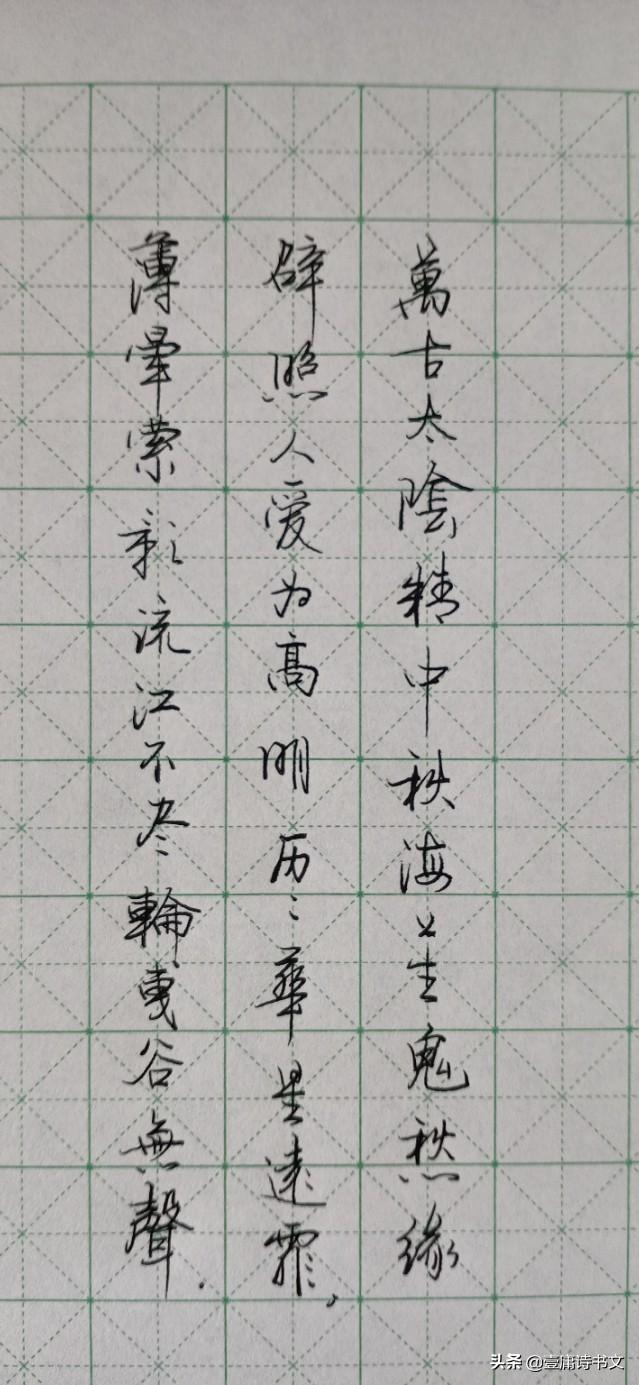 萬古太陰精中秋海上生鬼愁缘
辟照人爱为高明历々華星遠霏々
薄暈萦影流江不尽輪曳谷無聲.
头条 @壹庸诗书文